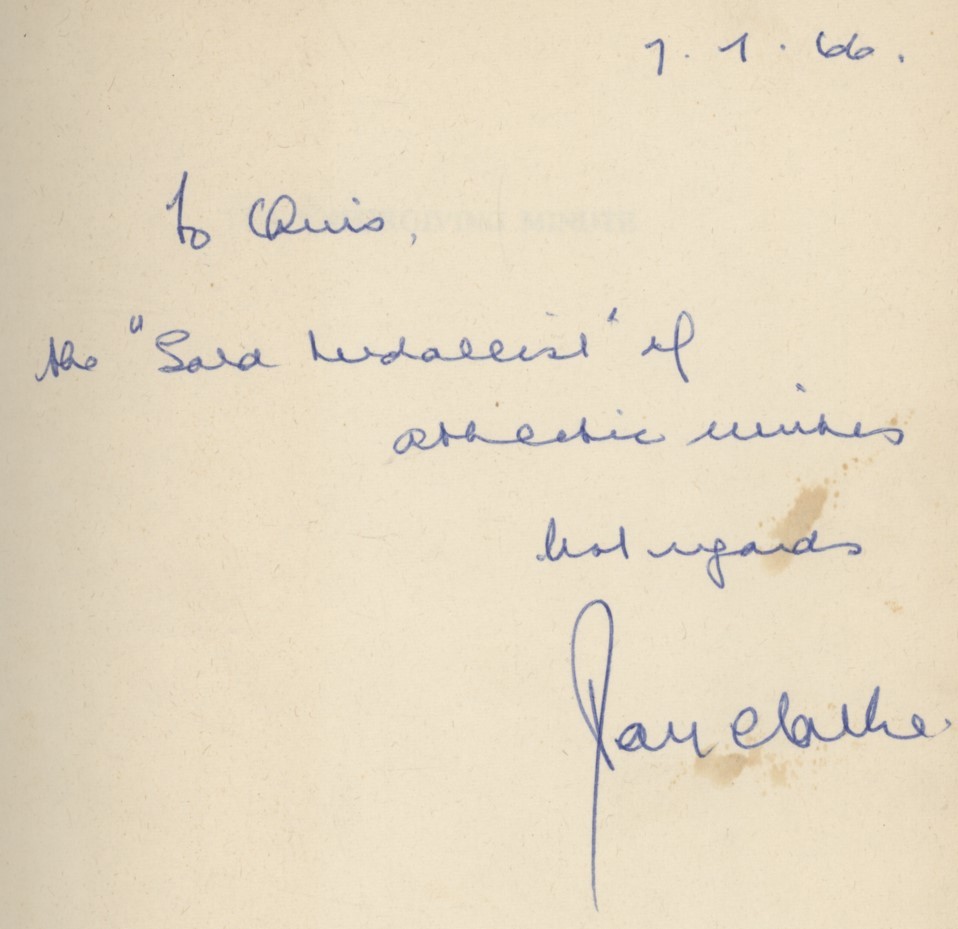 7.1.66.
To Chris,
the "Gold Medallist" of
athletic writers
best regards
Ron Clarke